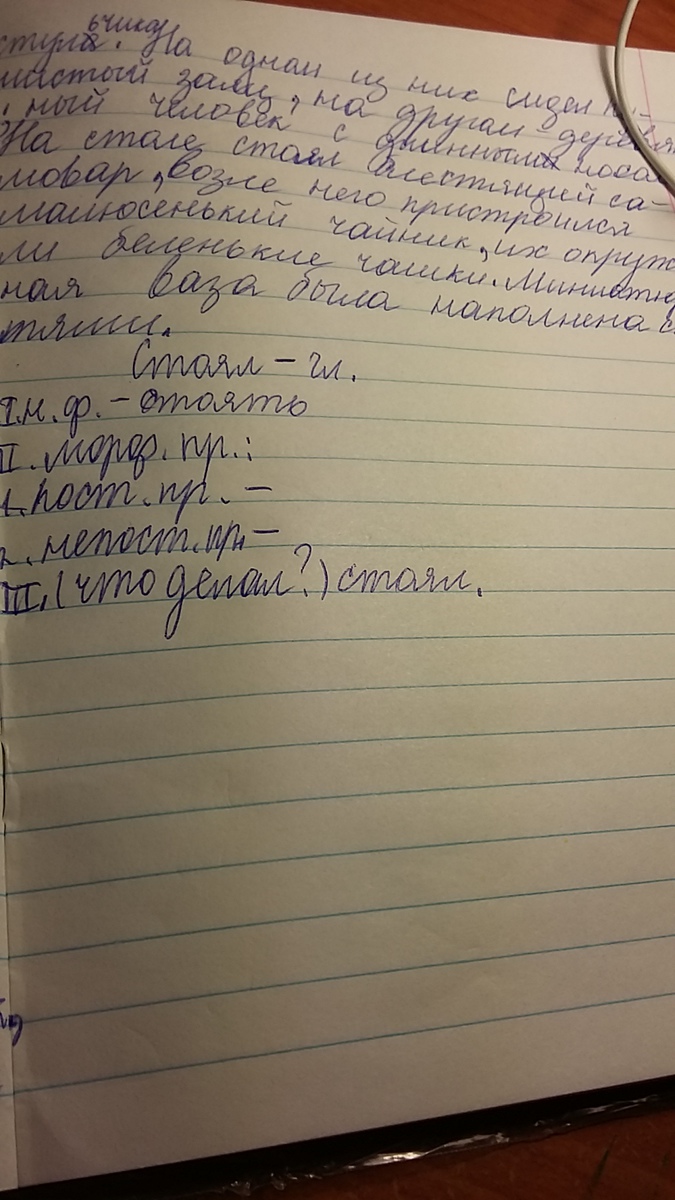 ьчика
стула. На однам из них сидел п-
шистый заяц, на другам - деревян
ный человек с длинным носам
На столе стоял блестящей са-
мовар, возле него пристроился
малюсенький чайник, их опруж
ли беленькие чашки. Миниатю
ная ваза была наполнена с
тями.
Стоял - гл.
I н. ф. - стоять
II. морф. пр.:
1. пост. пр. -
2. непост. пр. -
III. (что делал?) стоял.